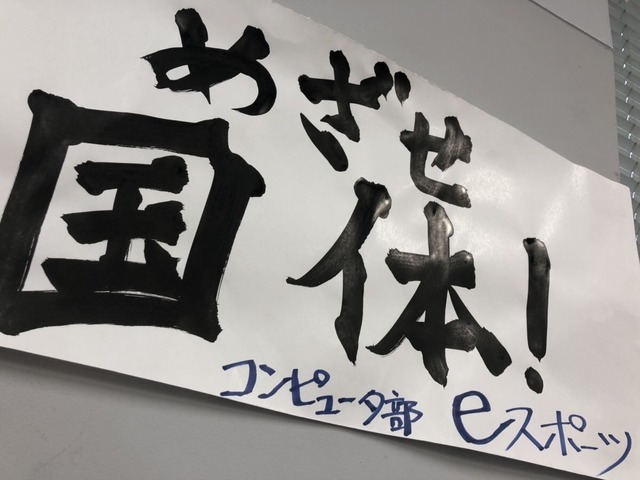 めざせ
国体!
コンピュータ部 eスポーツ